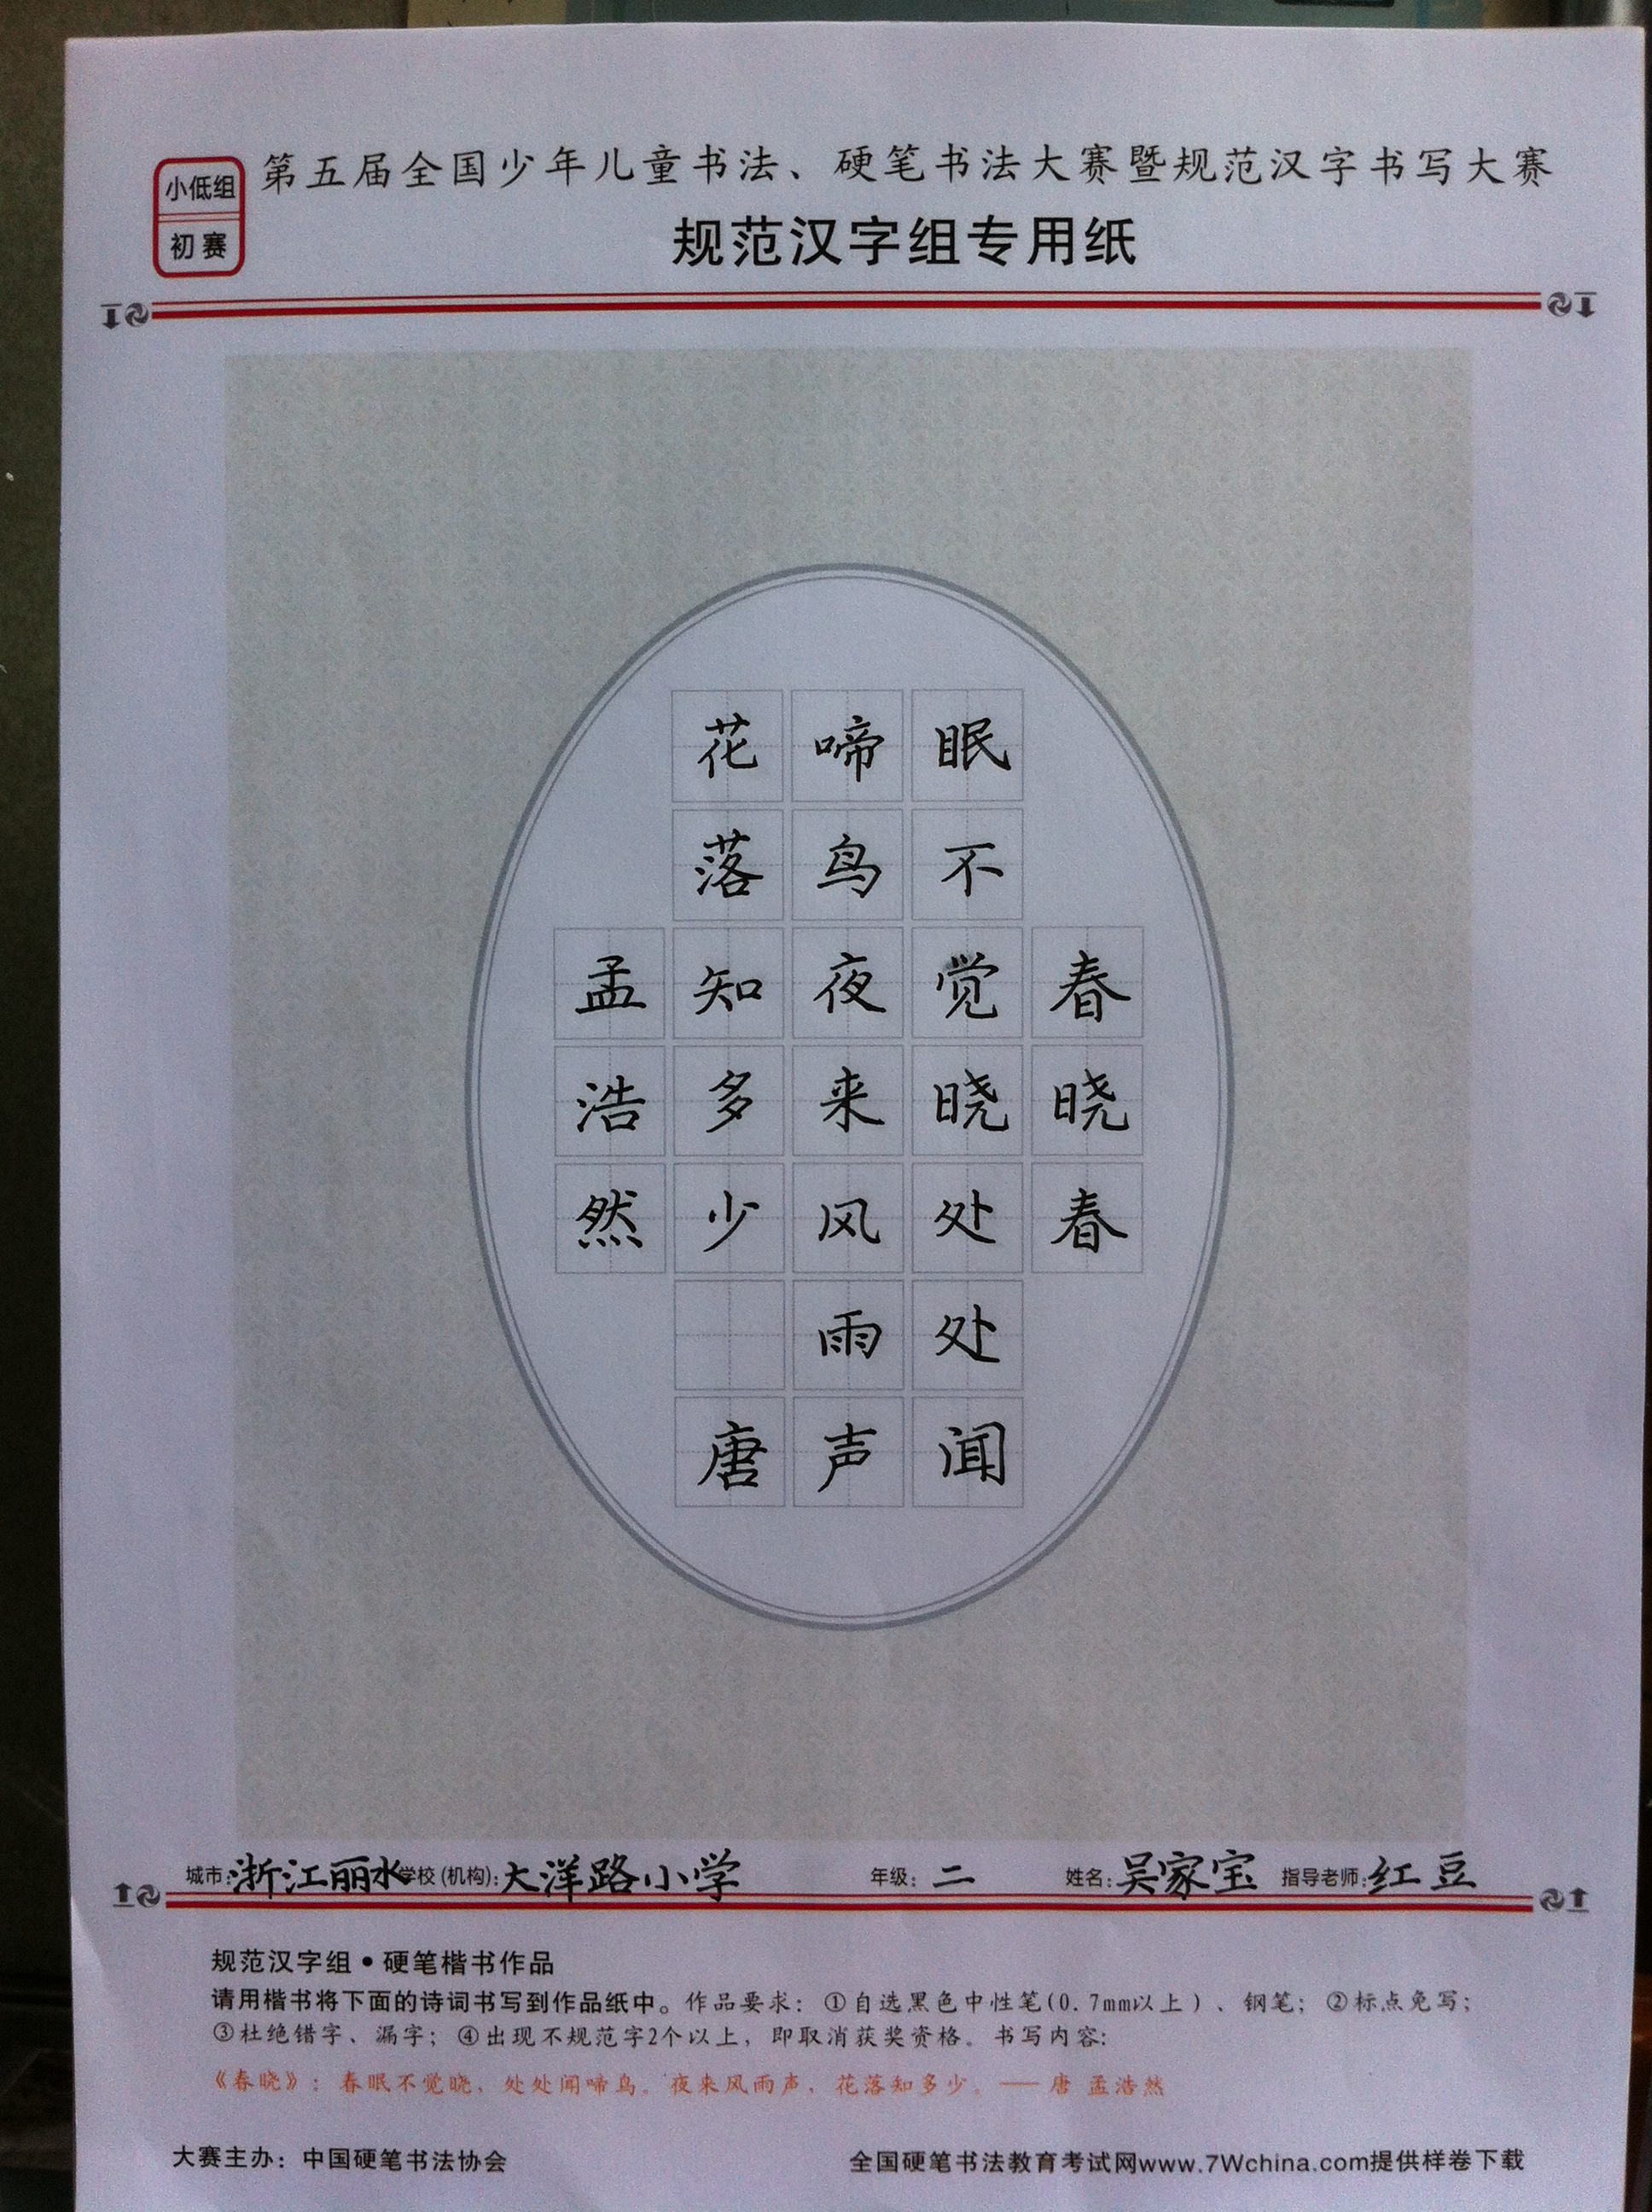 小低组
初赛
第五届全国少年儿童书法、硬笔书法大赛暨规范汉字书写大赛
规范汉字组专用纸
春晓春
眠不觉晓处处闻
啼鸟夜来风雨声
花落知多少 唐
孟浩然
城市:浙江丽水 学校(机构):大洋路小学 年级:二 姓名:吴家宝 指导老师:红豆
规范汉字组•硬笔楷书作品
请用楷书将下面的诗词书写到作品纸中。作品要求：①自选黑色中性笔(0.7mm以上)、钢笔；②标点免写；
③杜绝错字、漏字；④出现不规范字2个以上，即取消获奖资格。书写内容:
《春晓》：春眠不觉晓，处处闻啼鸟。夜来风雨声，花落知多少。——唐 孟浩然
大赛主办：中国硬笔书法协会
全国硬笔书法教育考试网www.7Wchina.com提供样卷下载